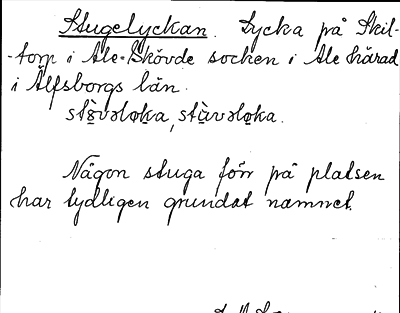 Stugelyckan. Lycka på Skil-
-torp i Ale-Skövde socken i Ale härad
i Älfsborgs län.
Någon stuga förr på platsen
har tydligen grundat namnet.